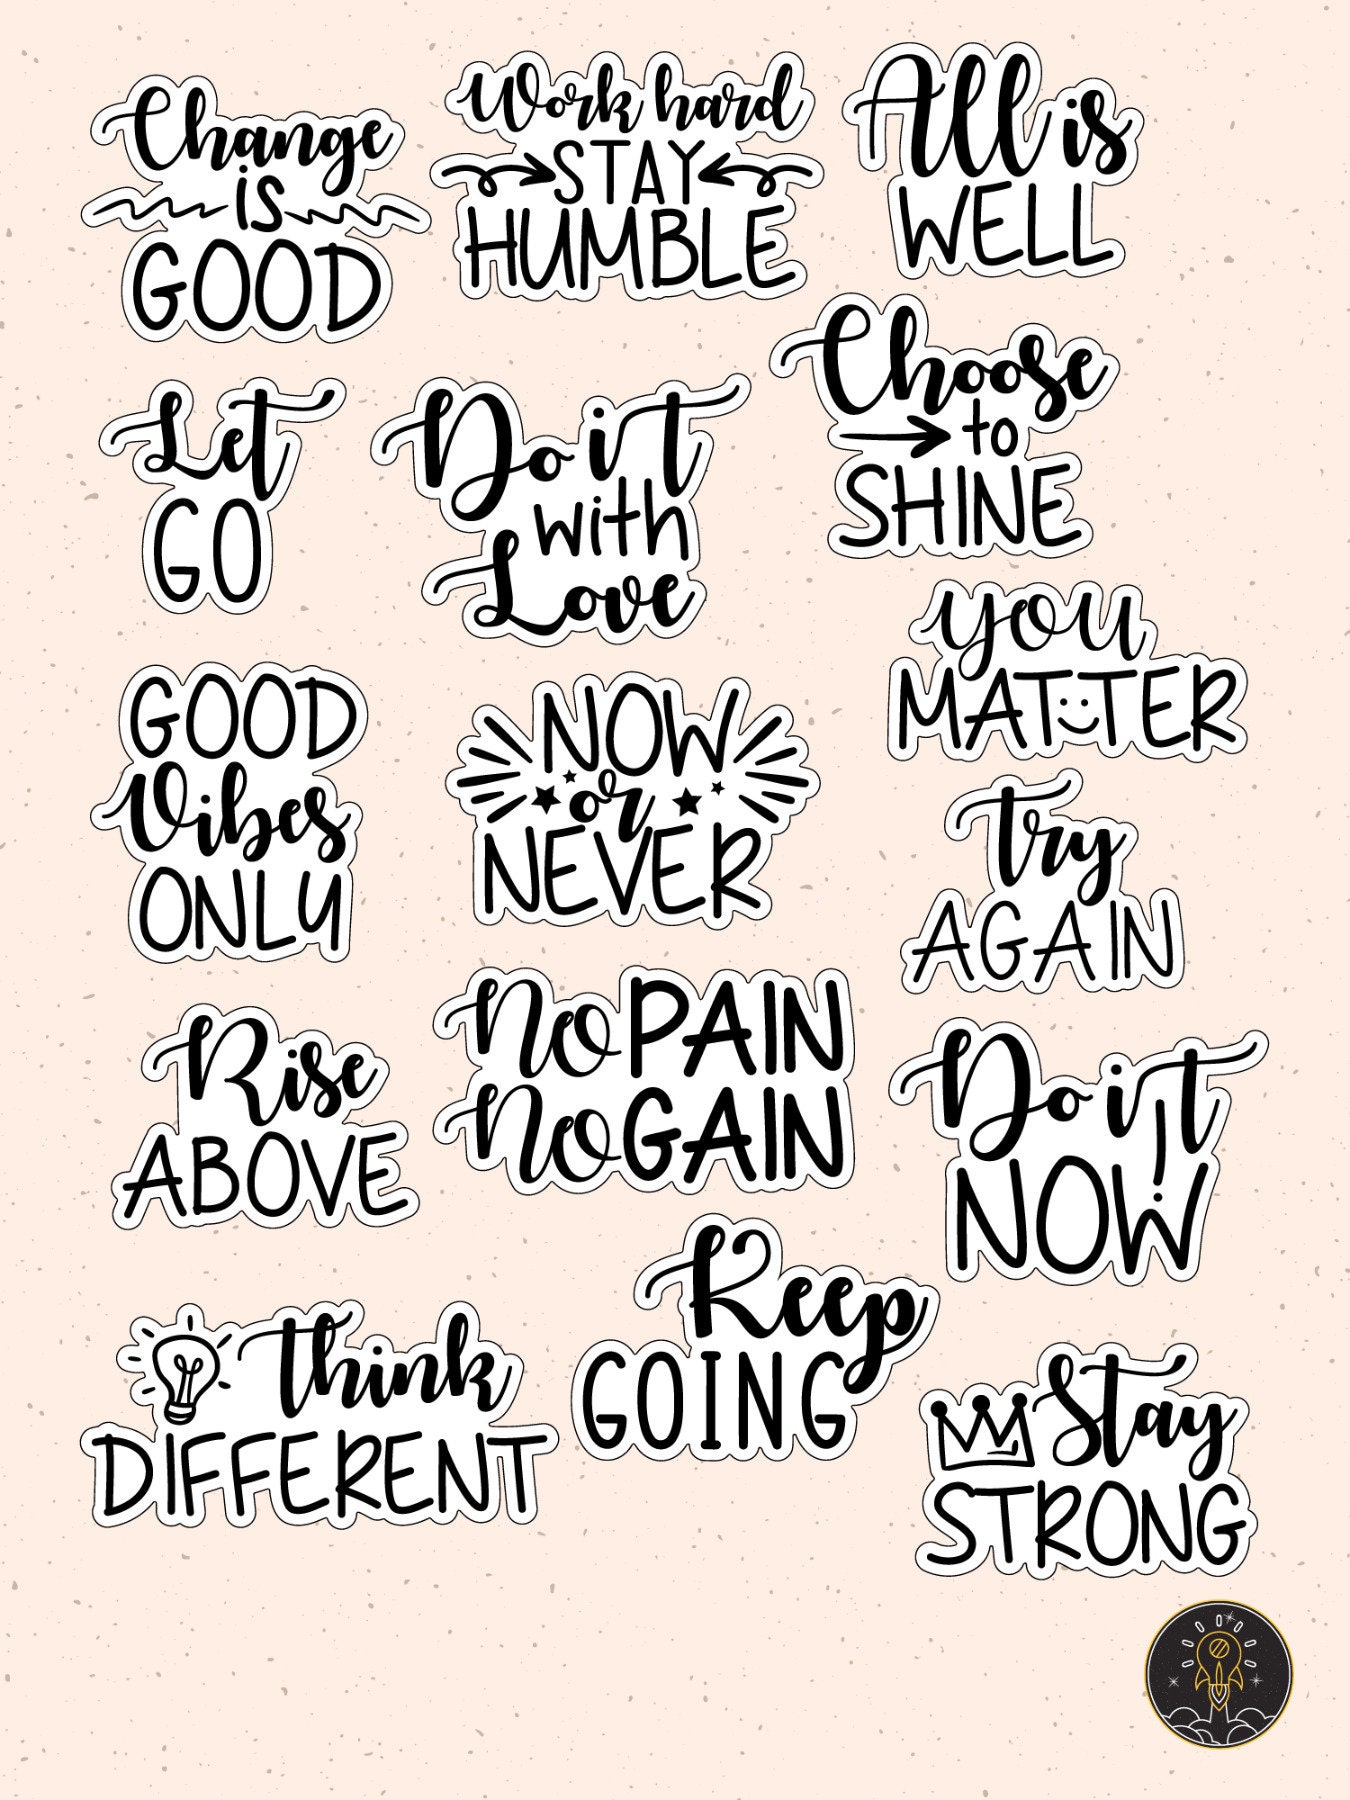 Change
is
GOOD
Work hard
STAY
HUMBLE
All is
WELL
Let
GO
Do it
with
Love
Choose
to
SHINE
GOOD
Vibes
ONLY
NOW
or
NEVER
you
MATTER
try
AGAIN
Rise
ABOVE
No PAIN
No GAIN
Do it
NOW
think
DIFFERENT
Keep
GOING
Stay
STRONG